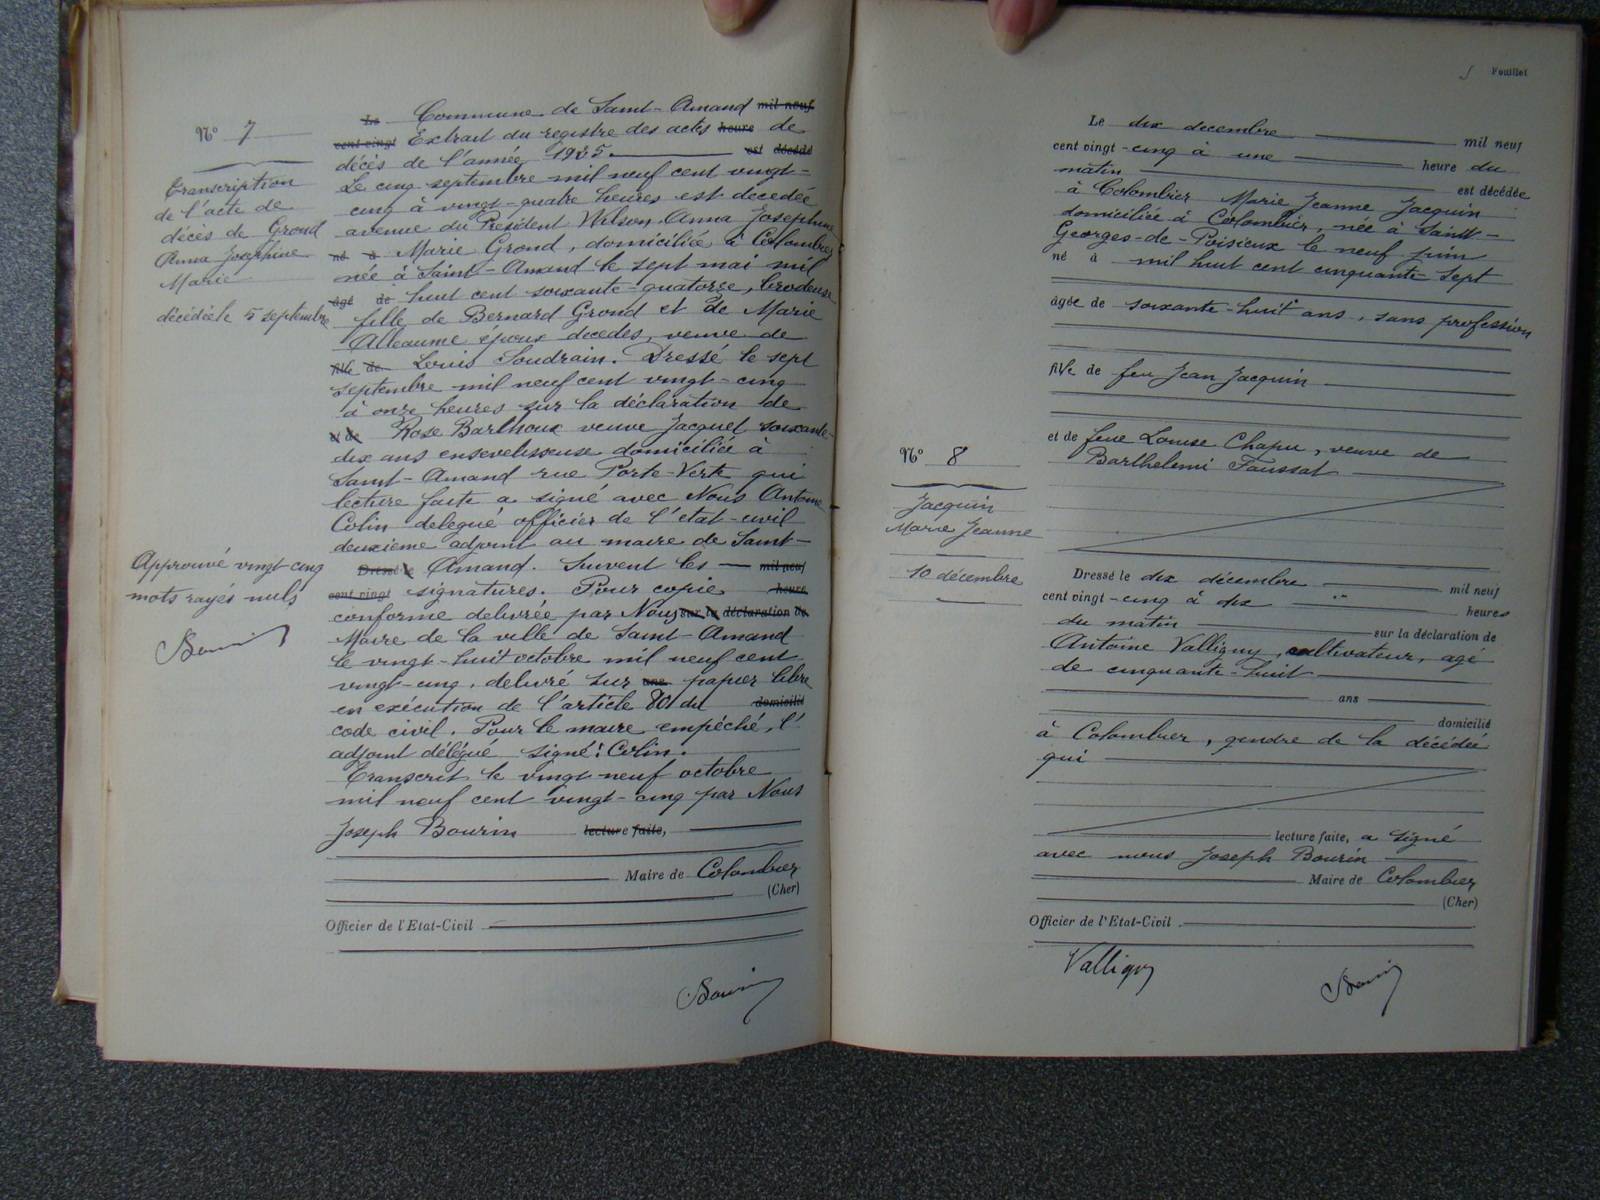 Nº 7
Transcription
de l'acte de
décès de Grond
Anna Joséphine
Marie
décédée le 5 septembre
Approuvé vingt cinq
mots rayés nuls
Bourin
Le Commune de Saint-Amand mil neuf
cent vingt Extrait du registre des actes heure de
décès de l'année 1925. est décédé
Le cinq septembre mil neuf cent vingt-
cinq à vingt-quatre heures est décédée
avenue du Président Wilson, Anna Joséphine
né à Marie Grond, domiciliée à Colombier
née à Saint-Amand le sept mai mil
âgé de huit cent soixante-quatorze, brodeuse
fille de Bernard Grond et de Marie
Alleaume époux décédés, veuve de
fille de Louis Soudrain. Dressé le sept
septembre mil neuf cent vingt-cinq
à onze heures sur la déclaration de
et de Rose Barthoux veuve Jacquet soixante-
dix ans ensevelisseuse domiciliée à
Saint-Amand rue Porte-Verte qui
lecture faite a signé avec Nous Antoine
Colin délégué officier de l'état-civil
deuxième adjoint au maire de Saint-
Dressé le Amand. Suivent les mil neuf
cent vingt signatures. Pour copie heure
conforme délivrée par Nous sur la déclaration de
Maire de la ville de Saint-Amand
le vingt-huit octobre mil neuf cent
vingt-cinq, délivré sur papier libre
en exécution de l'article 80 du domicilié
code civil. Pour le maire empêché, l'
adjoint délégué signé: Colin.
Transcrit le vingt neuf octobre
mil neuf cent vingt-cinq par Nous
Joseph Bourin lecture faite,
Maire de Colombier
(Cher)
Officier de l'Etat-Civil
Bourin
Feuillet
Nº 8
Jacquin
Marie Jeanne
10 décembre
Le dix décembre mil neuf
cent vingt-cinq à une heure du
matin est décédée
à Colombier Marie Jeanne Jacquin
domiciliée à Colombier, née à Saint-
Georges-de-Poisieux le neuf juin
né à mil huit cent cinquante-sept
âgée de soixante-huit ans, sans profession
fille de feu Jean Jacquin
et de feue Louise Chapu, veuve de
Barthelemi Faussat
Dressé le dix décembre mil neuf
cent vingt-cinq à dix heures
du matin sur la déclaration de
Antoine Valligny, cultivateur, agé
de cinquante-huit
ans
domicilié
à Colombier, gendre de la décédée
qui
lecture faite, a signé
avec nous Joseph Bourin
Maire de Colombier
(Cher)
Officier de l'Etat-Civil
Valligny
Bourin